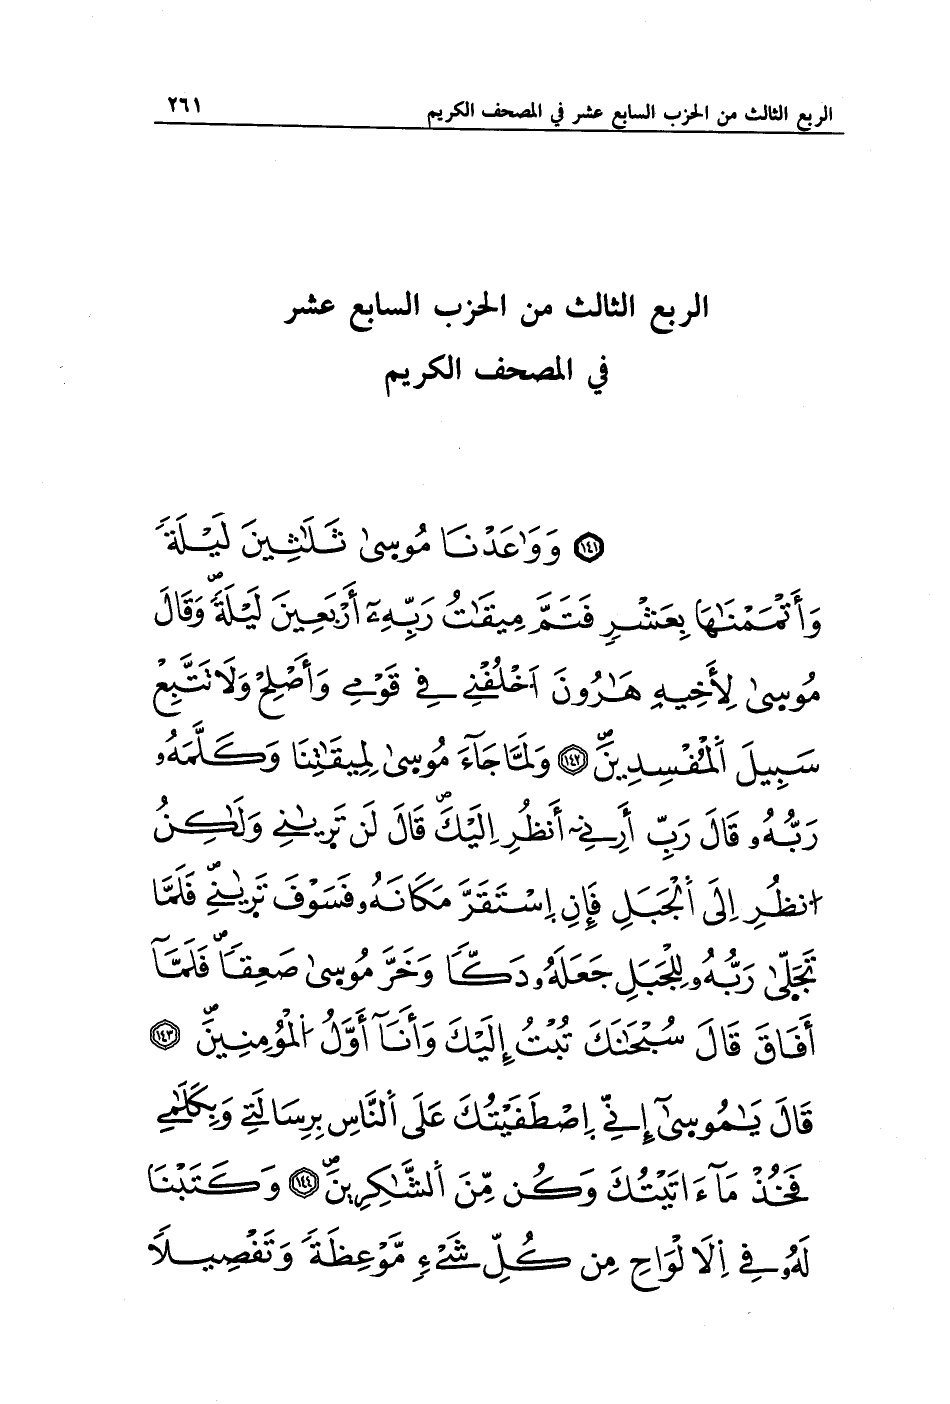 الربع الثالث من الحزب السابع عشر في المصحف الكريم ٢٦١
الربع الثالث من الحزب السابع عشر
في المصحف الكريم
۝١٤١ وَوَٰعَدْنَا مُوسىٰ ثَلَٰثِينَ لَيْلَةً
وَأَتْمَمْنَٰهَا بِعَشْرٍ فَتَمَّ مِيقَٰتُ رَبِّهِۦٓ أَرْبَعِينَ لَيْلَةًۖ وَقَالَ
مُوسىٰ لِأَخِيهِ هَٰرُونَ اَخْلُفْنِے فِے قَوْمِے وَأَصْلِحْ وَلَا تَتَّبِعْ
سَبِيلَ اَلْمُفْسِدِينَۖ ۝١٤٢ وَلَمَّا جَآءَ مُوسىٰ لِمِيقَٰتِنَا وَكَلَّمَهُۥ
رَبُّهُۥ قَالَ رَبِّ أَرِنِےٓ أَنظُرِ اِلَيْكَۖ قَالَ لَن تَرىٰنِے وَلَٰكِنُ
اُنظُرِ اِلَى اَلْجَبَلِ فَإِنِ اِسْتَقَرَّ مَكَانَهُۥ فَسَوْفَ تَرىٰنِےۖ فَلَمَّا
تَجَلّىٰ رَبُّهُۥ لِلْجَبَلِ جَعَلَهُۥ دَكّاً وَخَرَّ مُوسىٰ صَعِقاًۖ فَلَمَّآ
أَفَاقَ قَالَ سُبْحَٰنَكَ تُبْتُ إِلَيْكَ وَأَنَآ أَوَّلُ اُلْمُؤْمِنِينَۖ ۝١٤٣
قَالَ يَٰمُوسىٰٓ إِنِّے اِصْطَفَيْتُكَ عَلَى اَلنَّاسِ بِرِسَالَتِے وَبِكَلَٰمِے
فَخُذْ مَآ ءَاتَيْتُكَ وَكُن مِّنَ اَلشَّٰكِرِينَۖ ۝١٤٤ وَكَتَبْنَا
لَهُۥ فِے اِلَالْوَاحِ مِن كُلِّ شَےْءٍ مَّوْعِظَةً وَتَفْصِيلاً